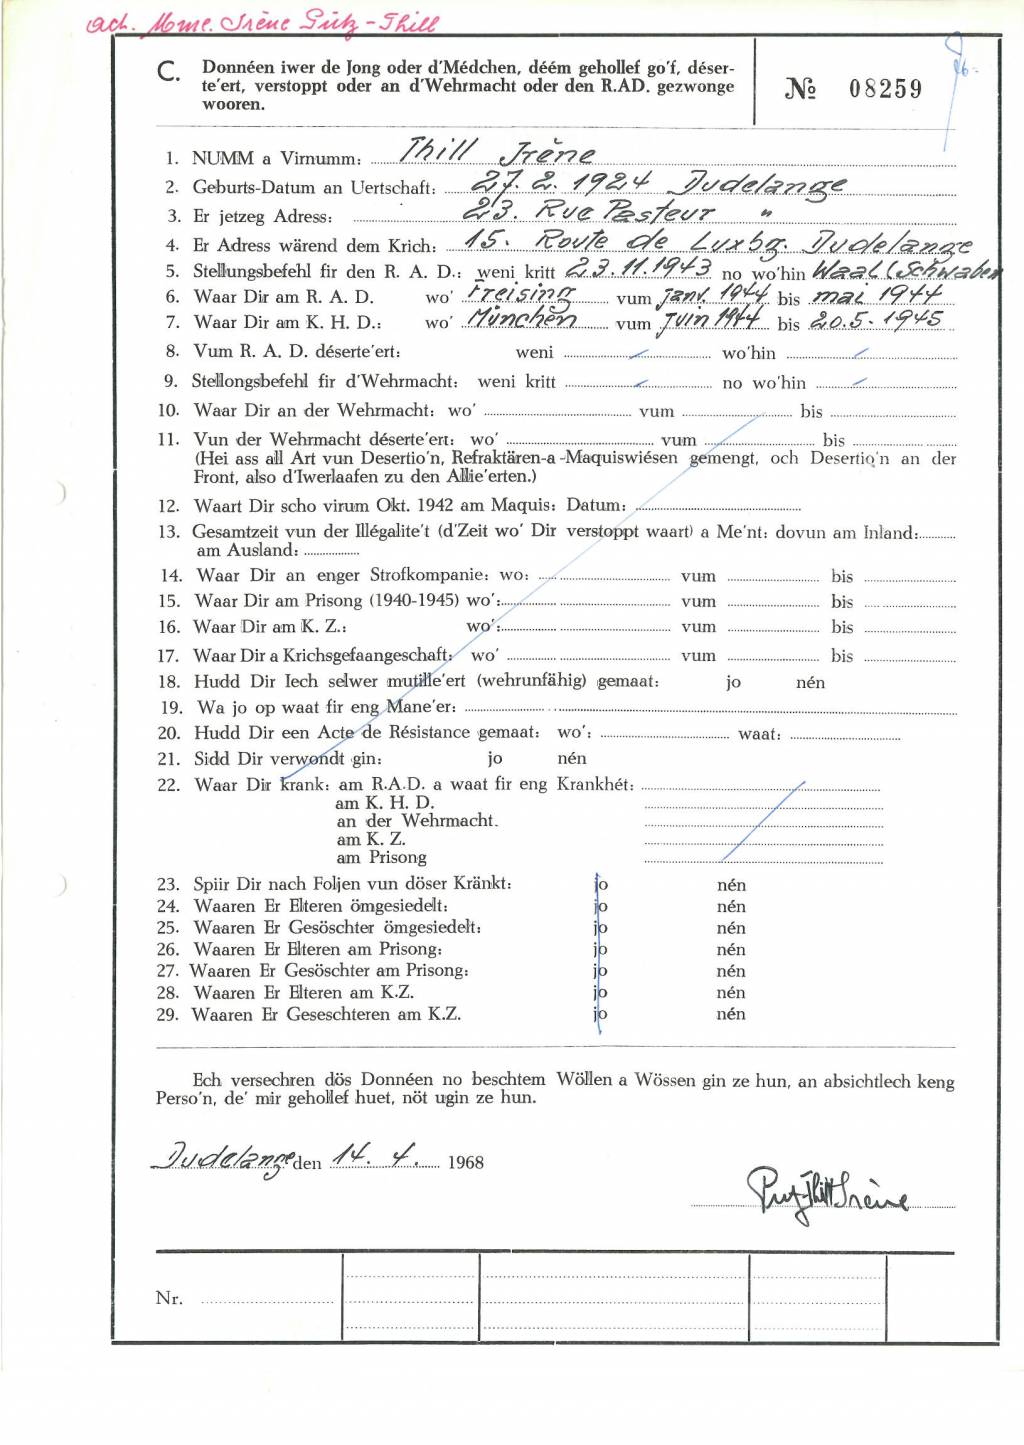 Mme. Irène Pütz-Thill
C. Donnéen iwer de Jong oder d'Médchen, déém gehollef go'f, déser-
te'ert, verstoppt oder an d'Wehrmacht oder den R.AD. gezwonge
wooren.
№ 08259
1. NUMM a Virnumm: Thill Irène
2. Geburts-Datum an Uertschaft: 27. 2. 1924 Dudelange
3. Er jetzeg Adress: 23. Rue Pasteur "
4. Er Adress wärend dem Krich: 15. Route de Luxbg. Dudelange
5. Stellungsbefehl fir den R. A. D.: weni kritt 23.11.1943 no wo'hin Waal (Schwaben
6. Waar Dir am R. A. D. wo' Freising vum janv. 1944 bis mai 1944
7. Waar Dir am K. H. D.: wo' München vum juin 1944 bis 20.5.1945
8. Vum R. A. D. déserte'ert: weni wo'hin
9. Stellongsbefehl fir d'Wehrmacht: weni kritt no wo'hin
10. Waar Dir an der Wehrmacht: wo' vum bis
11. Vun der Wehrmacht déserte'ert: wo' vum bis
(Hei ass all Art vun Desertio'n, Refraktären-a-Maquiswiésen gemengt, och Desertio'n an der
Front, also d'Iwerlaafen zu den Allie'erten.)
12. Waart Dir scho virum Okt. 1942 am Maquis: Datum:
13. Gesamtzeit vun der Illégalite't (d'Zeit wo' Dir verstoppt waart) a Me'nt: dovun am Inland:
am Ausland:
14. Waar Dir an enger Strofkompanie: wo: vum bis
15. Waar Dir am Prisong (1940-1945) wo': vum bis
16. Waar Dir am K. Z.: wo': vum bis
17. Waar Dir a Krichsgefaangeschaft: wo' vum bis
18. Hudd Dir Iech selwer mutille'ert (wehrunfähig) gemaat: jo nén
19. Wa jo op waat fir eng Mane'er:
20. Hudd Dir een Acte de Résistance gemaat: wo': waat:
21. Sidd Dir verwondt gin: jo nén
22. Waar Dir krank: am R.A.D. a waat fir eng Krankhét:
am K. H. D.
an der Wehrmacht.
am K. Z.
am Prisong
23. Spiir Dir nach Foljen vun döser Kränkt: jo nén
24. Waaren Er Elteren ömgesiedelt: jo nén
25. Waaren Er Gesöschter ömgesiedelt: jo nén
26. Waaren Er Elteren am Prisong: jo nén
27. Waaren Er Gesöschter am Prisong: jo nén
28. Waaren Er Elteren am K.Z. jo nén
29. Waaren Er Geseschteren am K.Z. jo nén
Ech versechren dös Donnéen no beschtem Wöllen a Wössen gin ze hun, an absichtlech keng
Perso'n, de' mir gehollef huet, nöt ugin ze hun.
Dudelange den 14. 4. 1968
Putz-Thill Irène
Nr.